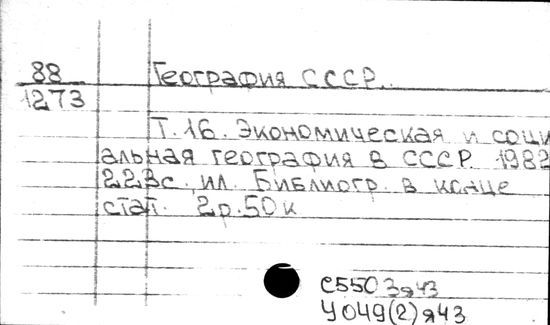 88
1273
География СССР.
Т.16. Экономическая и соци
альная география в СССР 1982
223с. ил. Библиогр. в конце
стат. 2р.50к
С5503я43
У049(2)я43